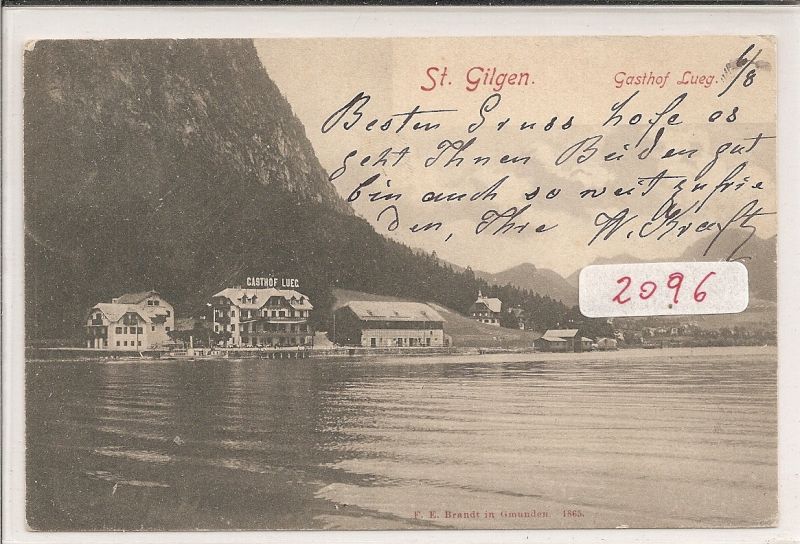 St. Gilgen. Gasthof Lueg. 6/8
Besten Gruss hoffe es
geht Ihnen Beiden gut
bin auch so weit zufrie
den, Ihre N. Kraft
GASTHOF LUEG
2096
F. E. Brandt in Gmunden. 1865.